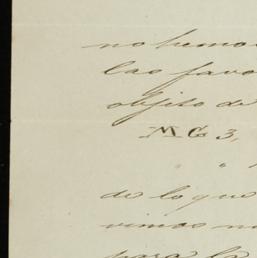 no hemo
las favo
objeto de
M G 3,
" "
de lo que
vimos no
para la